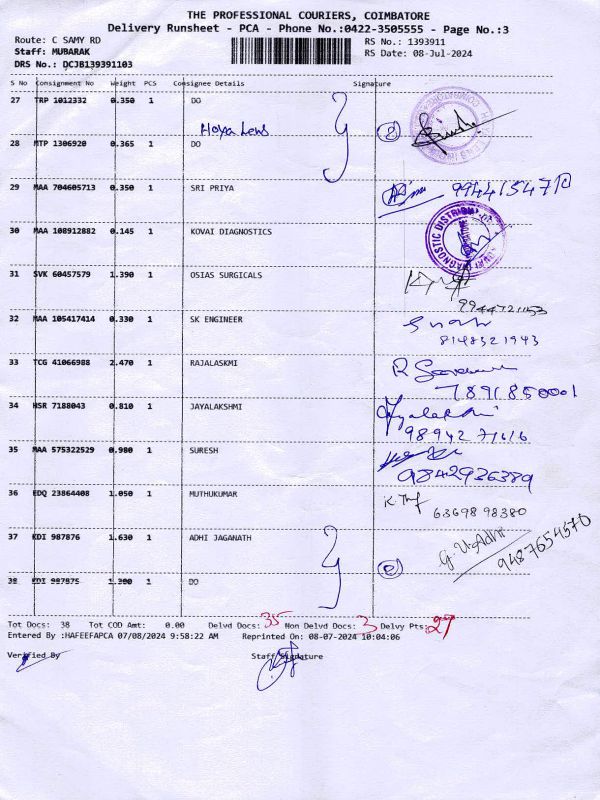 THE PROFESSIONAL COURIERS, COIMBATORE
Delivery Runsheet - PCA - Phone No.:0422-3505555 - Page No.:3
Route: C SAMY RD
RS No.: 1393911
Staff: MUBARAK
RS Date: 08-Jul-2024
DRS No.: DCJB139391103
S No Consignment No Weight PCS Consignee Details Signature
27 TRP 1012332 0.350 1 DO
Hoya Lens
28 MTP 1306920 0.365 1 DO
29 MAA 704605713 0.350 1 SRI PRIYA
9944154710
30 MAA 108912882 0.145 1 KOVAI DIAGNOSTICS
31 SVK 60457579 1.390 1 OSIAS SURGICALS
9944721153
32 MAA 105417414 0.330 1 SK ENGINEER
8148321943
33 TCG 41066988 2.470 1 RAJALASKMI
7891850001
34 HSR 7188043 0.810 1 JAYALAKSHMI
Jyalakshi
98942 71616
35 MAA 575322529 0.980 1 SURESH
9842936389
36 EDQ 23864408 1.050 1 MUTHUKUMAR
63698 98380
37 KDI 987876 1.630 1 ADHI JAGANATH
9487654570
38 KDI 987875 1.300 1 DO
Tot Docs: 38 Tot COD Amt: 0.00 Delvd Docs: 35 Non Delvd Docs: 3 Delvy Pts: 27
Entered By :HAFEEFAPCA 07/08/2024 9:58:22 AM Reprinted On: 08-07-2024 10:04:06
Verified By Staff Signature